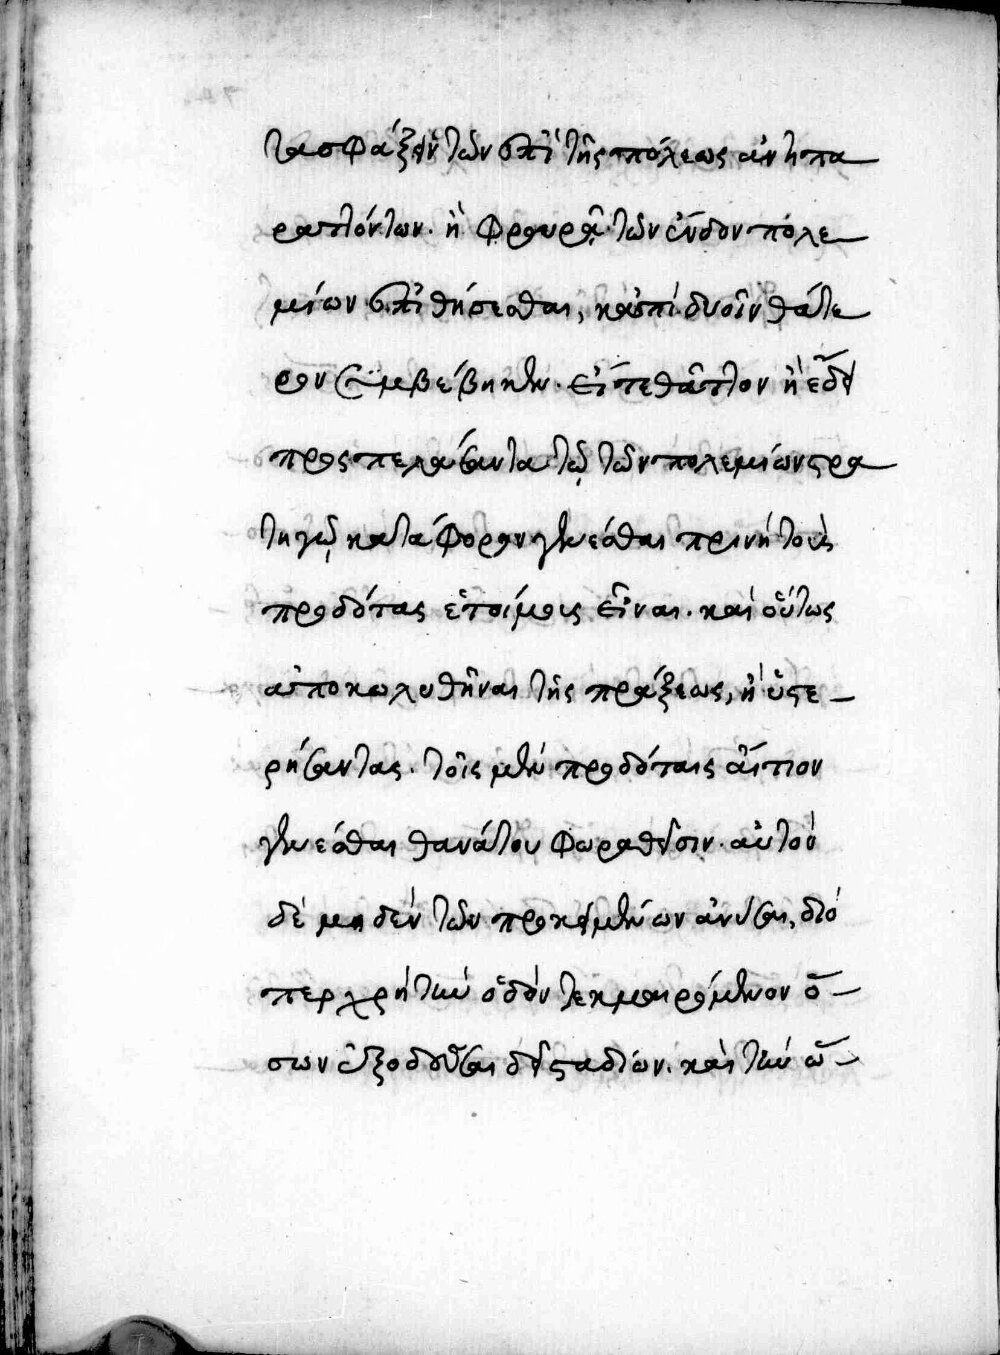 τασφάξειν τῶν ἐπὶ τῆς πόλεως ἀνηπα
ραπλόντων. ἢ φρουρᾷ τῶν ἔνδον πολε
μίων ἐπιθήσεσθαι, κἀπὶ δυοῖν θάτε
ρον συμβέβηκεν. εἴπεθᾶττον ἢ ἔδει
προσπελάσαντα τῷ τῶν πολεμίων στρα
τηγῷ κατάφορον γενέσθαι πρινὴ τοὺς
προδότας ἑτοίμους εἶναι. καὶ οὕτως
ἀποκωλυθῆναι τῆς πράξεως, ἢ ὑστε
ρήσαντας. τοῖς μὲν προδόταις αἴτιον
γενέσθαι θανάτου φωραθεῖσιν. αὐτὸν
δὲ μηδὲν τῶν προκειμένων ἀνύσαι, διό
περ χρὴ τὴν ὁδὸν τεκμαιρόμενον ὅ
σων ἐξοδεῦσαι δεῖ σταδίων. καὶ τὴν ὥ